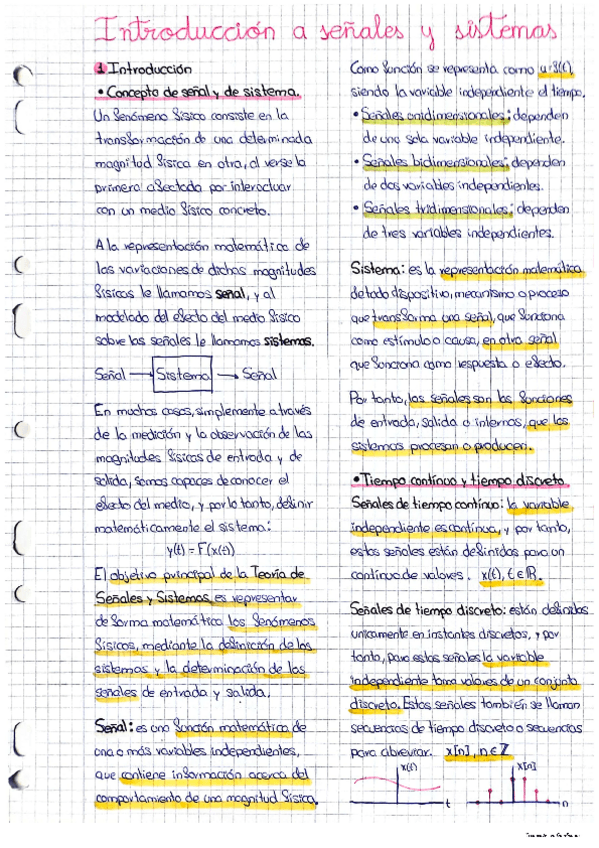 Introducción a señales y sistemas
1 Introducción
• Concepto de señal y de sistema.
Un fenómeno físico consiste en la
transformación de una determinada
magnitud física en otra, al verse la
primera afectada por interactuar
con un medio físico concreto.
A la representación matemática de
las variaciones de dichas magnitudes
físicas le llamamos señal, y al
modelado del efecto del medio físico
sobre las señales le llamamos sistemas.
Señal → Sistema → Señal
En muchos casos, simplemente a través
de la medición y la observación de las
magnitudes físicas de entrada y de
salida, somos capaces de conocer el
efecto del medio, y por lo tanto, definir
matemáticamente el sistema:
y(t) = F(x(t))
El objetivo principal de la Teoría de
Señales y Sistemas es representar
de forma matemática los fenómenos
físicos, mediante la definición de los
sistemas y la determinación de las
señales de entrada y salida.
Señal: es una función matemática de
una o más variables independientes,
que contiene información acerca del
comportamiento de una magnitud física.
Como función se representa como
siendo la variable independiente el tiempo.
• Señales unidimensionales: dependen
de una sola variable independiente.
• Señales bidimensionales: dependen
de dos variables independientes.
• Señales tridimensionales: dependen
de tres variables independientes.
Sistema: es la representación matemática
de todo dispositivo, mecanismo o proceso
que transforma una señal, que funciona
como estímulo o causa, en otra señal
que funciona como respuesta o efecto.
Por tanto, las señales son las funciones
de entrada, salida o internas, que los
sistemas procesan o producen.
• Tiempo contínuo y tiempo discreto
Señales de tiempo contínuo: la variable
independiente es contínua, y por tanto,
estas señales están definidas para un
contínuo de valores. x(t), t ∈ ℝ.
Señales de tiempo discreto: están definidas
unicamente en instantes discretos, y por
tanto, para estas señales la variable
independiente toma valores de un conjunto
discreto. Estas señales también se llaman
secuencias de tiempo discreto o secuencias
para abreviar. x[n], n ∈ ℤ
x(t)
t
x[n]
n